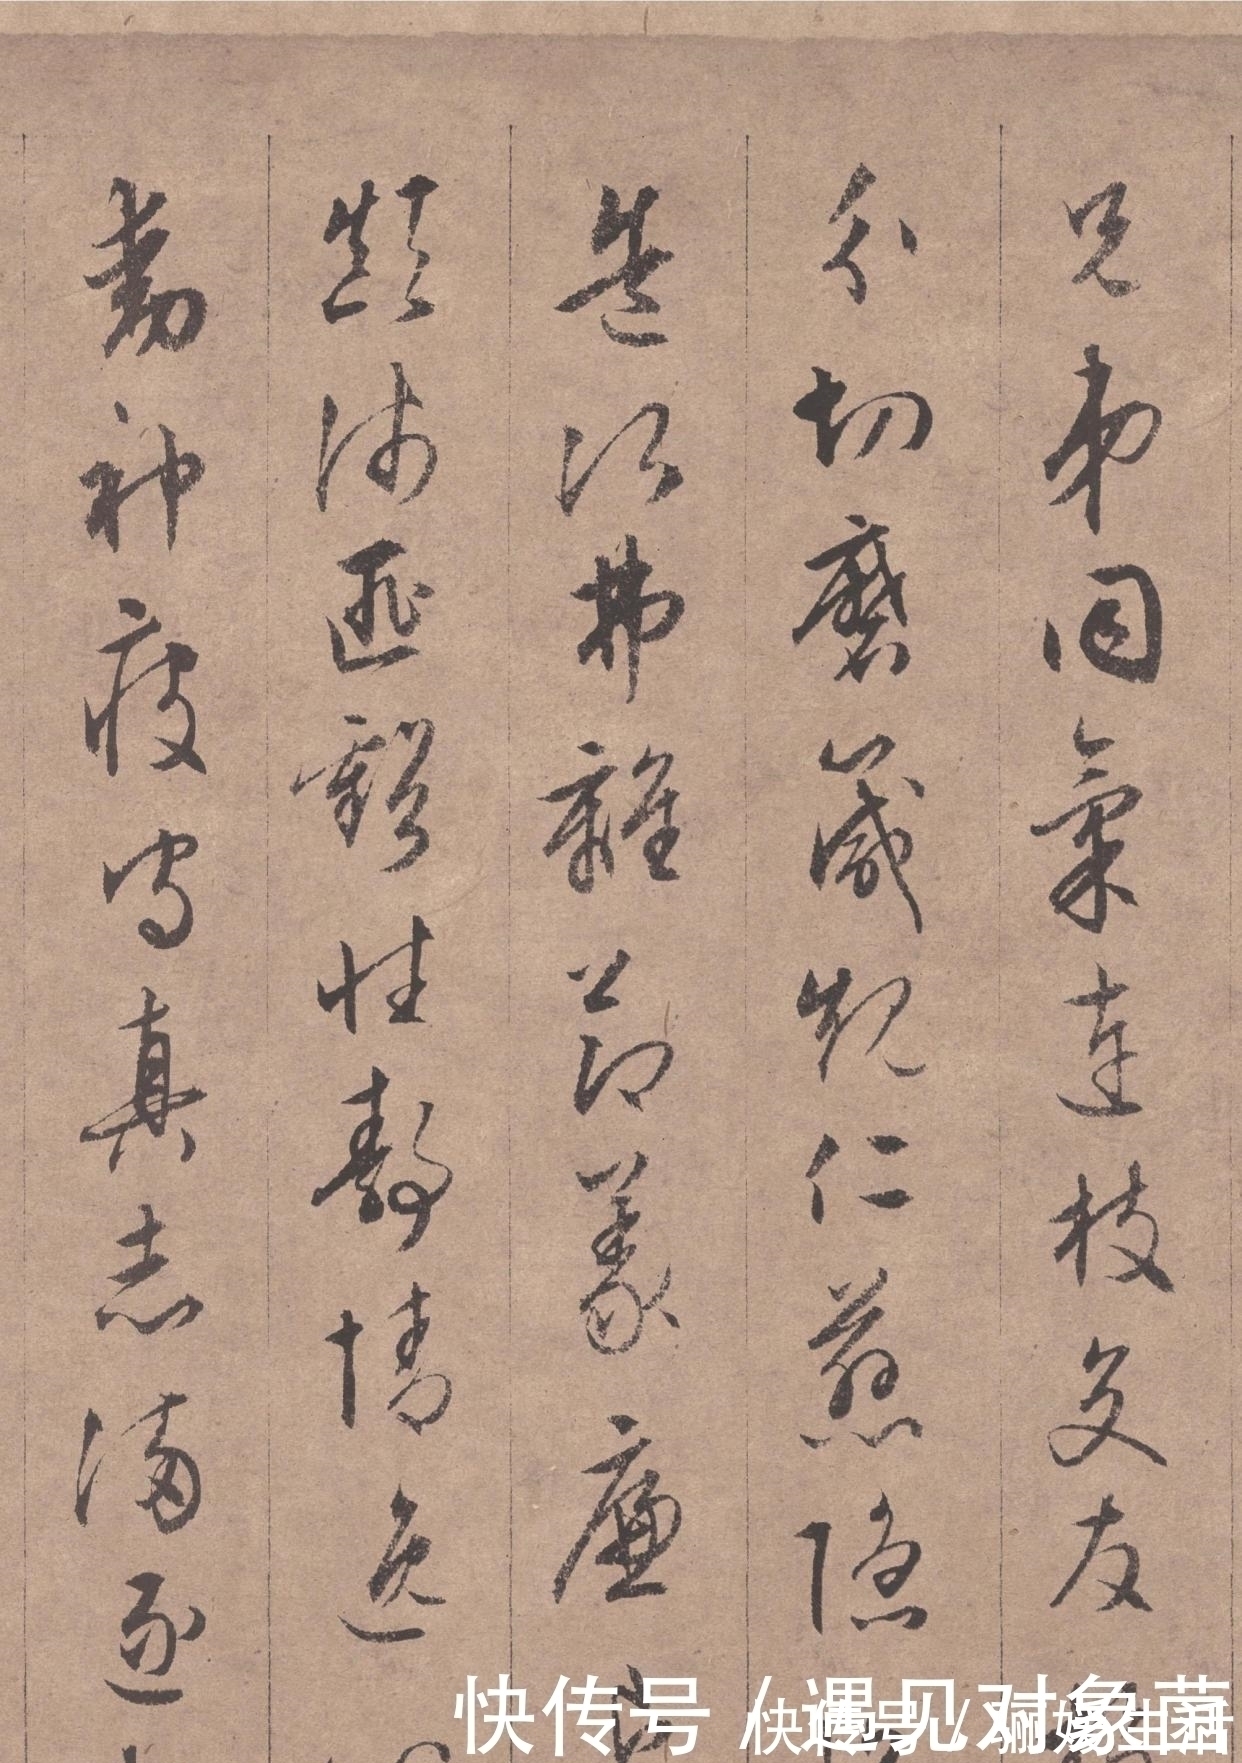 兄弟同氣連枝交友
分切磨箴規仁慈隱
造次弗離節義廉
顛沛匪虧性静情逸
動神疲守真志滿逐
快传号 / 遇见对象菌